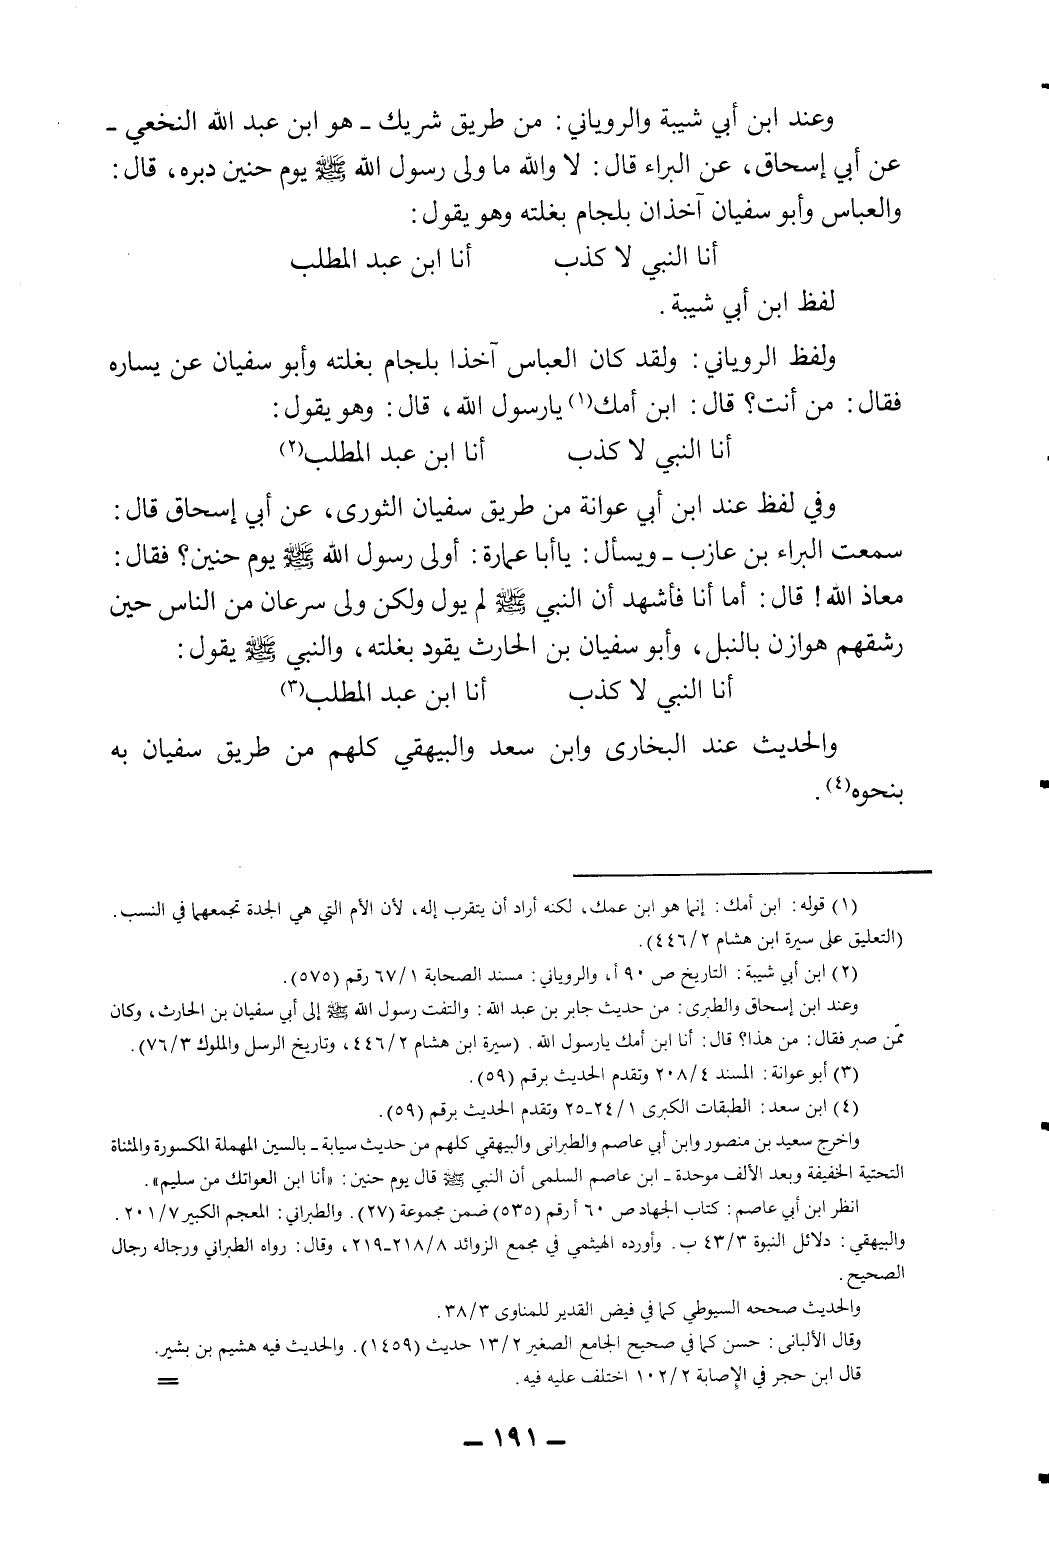 وعند ابن أبي شيبة والروياني: من طريق شريك ـ هو ابن عبد الله النخعي ـ
عن أبي إسحاق، عن البراء قال: لا والله ما ولى رسول الله ﷺ يوم حنين دبره، قال:
والعباس وأبو سفيان آخذان بلجام بغلته وهو يقول:
أنا النبي لا كذب أنا ابن عبد المطلب
لفظ ابن أبي شيبة.
ولفظ الروياني: ولقد كان العباس آخذا بلجام بغلته وأبو سفيان عن يساره
فقال: من أنت؟ قال: ابن أمك(١) يارسول الله، قال: وهو يقول:
أنا النبي لا كذب أنا ابن عبد المطلب(٢)
وفي لفظ عند ابن أبي عوانة من طريق سفيان الثورى، عن أبي إسحاق قال:
سمعت البراء بن عازب ـ ويسأل: ياأبا عمارة: أولى رسول الله ﷺ يوم حنين؟ فقال:
معاذ الله! قال: أما أنا فأشهد أن النبي ﷺ لم يول ولكن ولى سرعان من الناس حين
رشقهم هوازن بالنبل، وأبو سفيان بن الحارث يقود بغلته، والنبي ﷺ يقول:
أنا النبي لا كذب أنا ابن عبد المطلب(٣)
والحديث عند البخارى وابن سعد والبيهقي كلهم من طريق سفيان به
بنحوه(٤).
(١) قوله: ابن أمك: إنما هو ابن عمك، لكنه أراد أن يتقرب إله، لأن الأم التي هي الجدة تجمعهما في النسب.
(التعليق على سيرة ابن هشام ٤٤٦/٢).
(٢) ابن أبي شيبة: التاريخ ص ٩٠ أ، والروياني: مسند الصحابة ٦٧/١ رقم (٥٧٥).
وعند ابن إسحاق والطبرى: من حديث جابر بن عبد الله: والتفت رسول الله ﷺ إلى أبي سفيان بن الحارث، وكان
ممّن صبر فقال: من هذا؟ قال: أنا ابن أمك يارسول الله. (سيرة ابن هشام ٤٤٦/٢، وتاريخ الرسل والملوك ٧٦/٣).
(٣) أبو عوانة: المسند ٢٠٨/٤ وتقدم الحديث برقم (٥٩).
(٤) ابن سعد: الطبقات الكبرى ٢٤/١ـ٢٥ وتقدم الحديث برقم (٥٩).
واخرج سعيد بن منصور وابن أبي عاصم والطبرانى والبيهقي كلهم من حديث سيابة ـ بالسين المهملة المكسورة والمثناة
التحتية الخفيفة وبعد الألف موحدة ـ ابن عاصم السلمى أن النبي ﷺ قال يوم حنين: «أنا ابن العواتك من سليم».
انظر ابن أبي عاصم: كتاب الجهاد ص ٦٠ أ رقم (٥٣٥) ضمن مجموعة (٢٧). والطبراني: المعجم الكبير ٢٠١/٧.
والبيهقي: دلائل النبوة ٤٣/٣ ب. وأورده الهيثمي في مجمع الزوائد ٢١٨/٨ـ٢١٩، وقال: رواه الطبراني ورجاله رجال
الصحيح.
والحديث صححه السيوطي كما في فيض القدير للمناوى ٣٨/٣.
وقال الألبانى: حسن كما في صحيح الجامع الصغير ١٣/٢ حديث (١٤٥٩). والحديث فيه هشيم بن بشير.
قال ابن حجر في الإصابة ١٠٢/٢ اختلف عليه فيه. =
ـ ١٩١ ـ